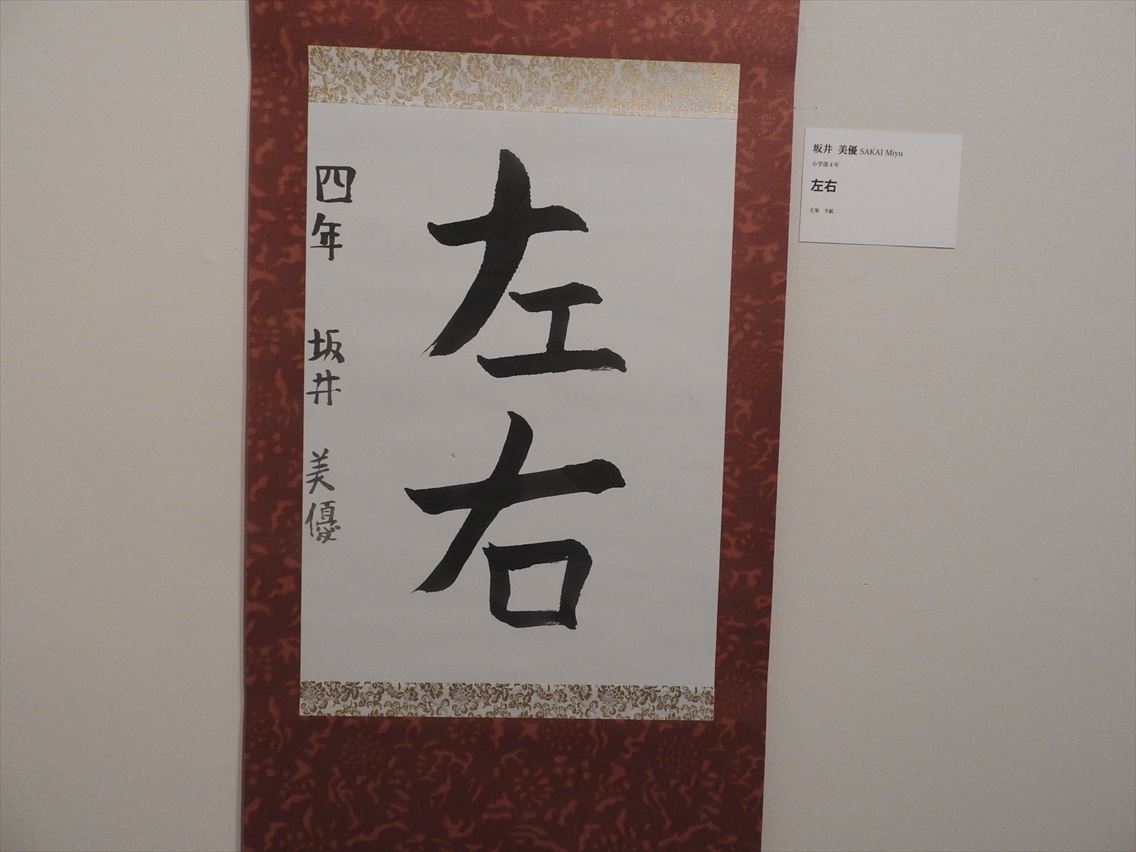 左右
四年 坂井 美優
坂井 美優 SAKAI Miyu
小学部4年
左右
毛筆 半紙